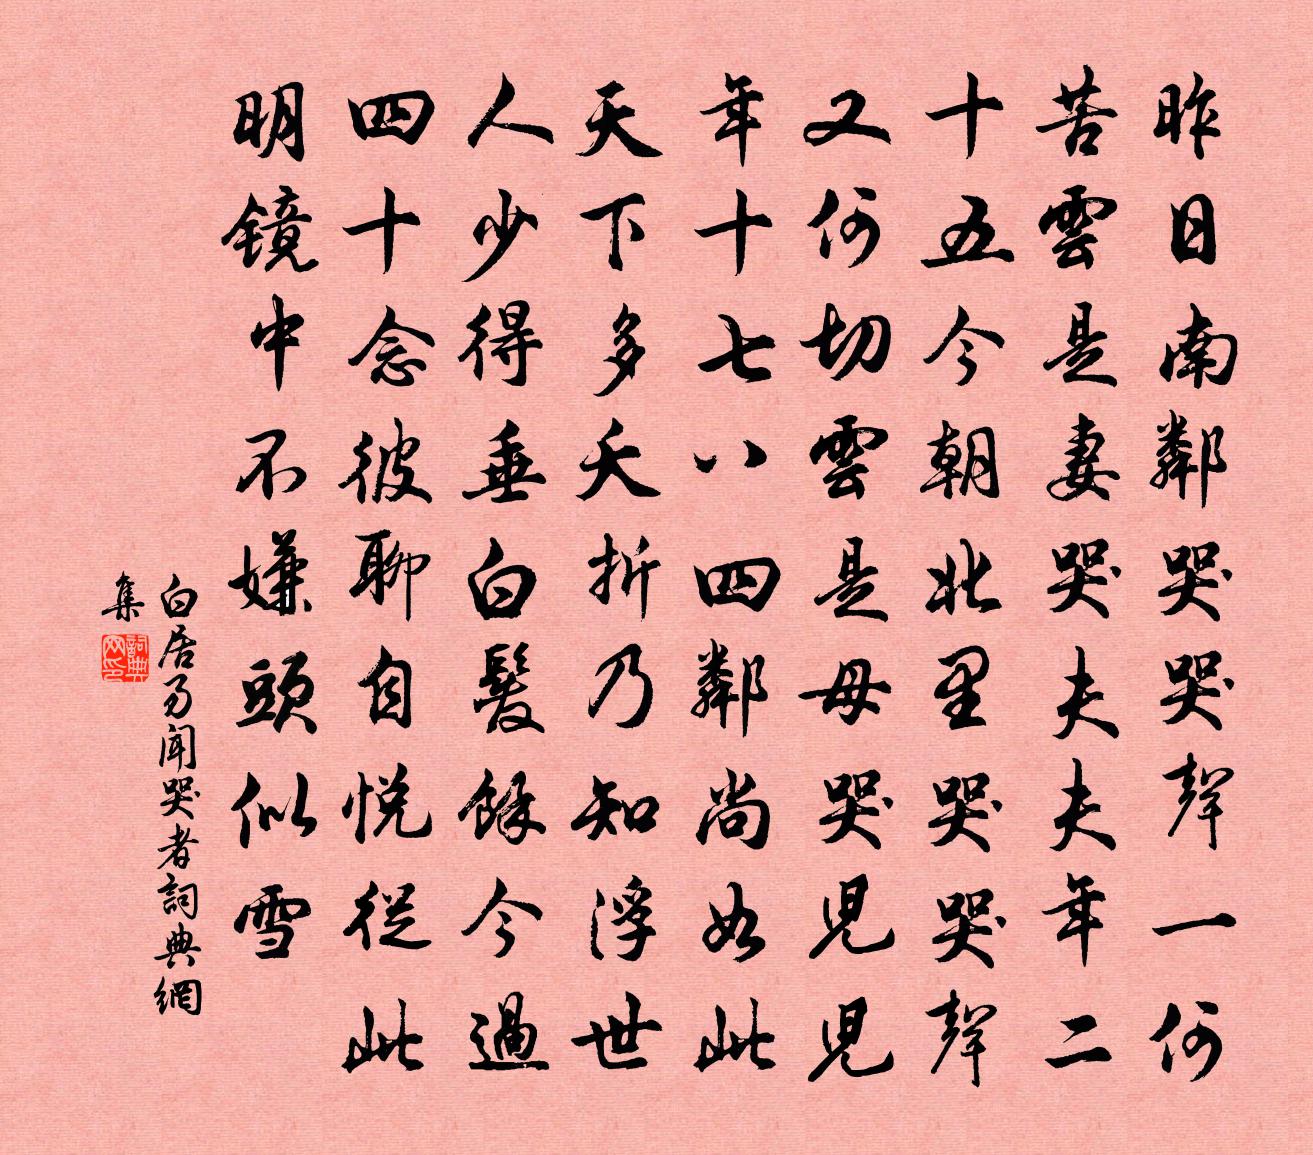 昨日南鄰哭哭聲一何
苦雲是妻哭夫夫年二
十五今朝北里哭哭聲
又何切雲是母哭兒兒
年十七八四鄰尚如此
天下多夭折乃知浮世
人少得垂白髮餘今過
四十念彼聊自悅從此
明鏡中不嫌頭似雪
白居易聞哭者詞典網
集
詞典網印